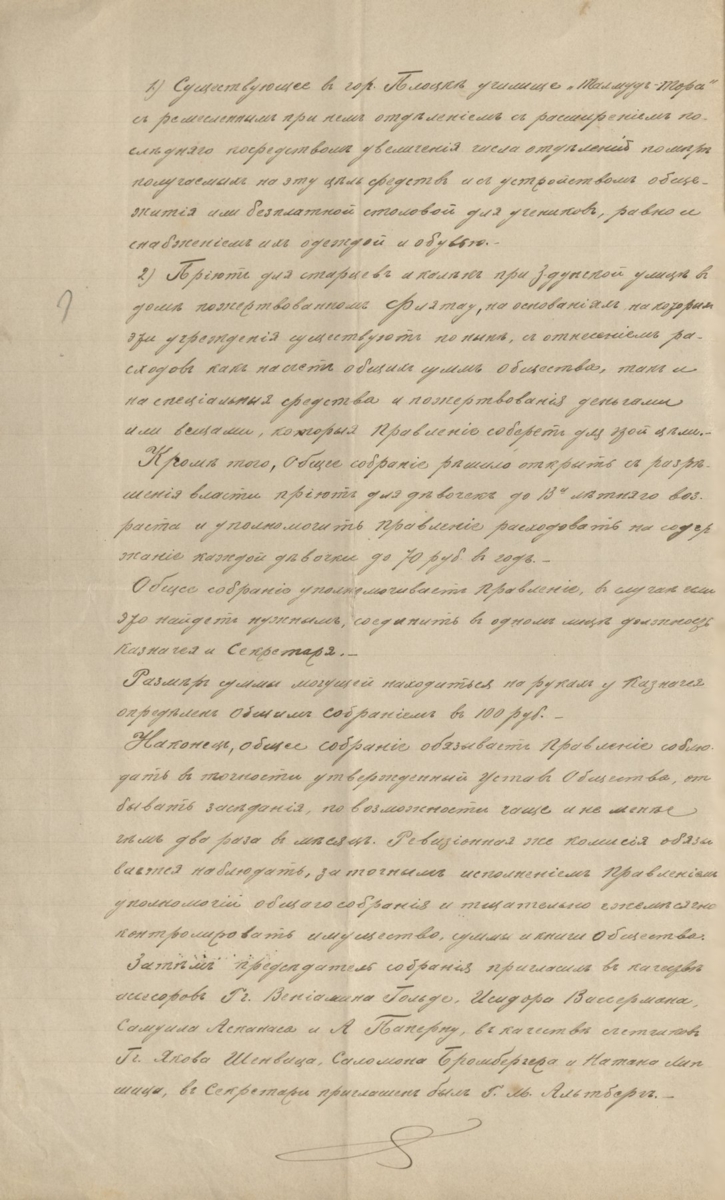 1) Существующее в гор. Плоцкѣ училище „Талмудъ-Тора“
съ ремесленнымъ при немъ отдѣленіемъ съ расширеніемъ по-
слѣдняго посредствомъ увеличенія числа отдѣленій по мѣрѣ
получаемыхъ на эту цѣль средствъ и съ устройствомъ обще-
житія или безплатной столовой для учениковъ, равно и
снабженіемъ ихъ одеждой и обувью.-
2) Пріютъ для старцевъ и калѣкъ при Здунской улицѣ в
домѣ пожертвованномъ Флятау, на основаніяхъ на которыхъ
эти учрежденія существуютъ по нынѣ, съ отнесеніемъ ра-
сходовъ какъ на счетъ общихъ суммъ Общества, такъ и
на спеціальныя средства и пожертвованія деньгами
или вещами, которыя Правленіе соберетъ для этой цѣли.-
Кромѣ того, Общее собраніе рѣшило открыть съ разрѣ-
шенія власти пріютъ для дѣвочекъ до 13и лѣтняго воз-
раста и уполномочить Правленіе расходовать на содер
жаніе каждой дѣвочки до 70 руб в годъ.-
Общее собраніе уполномочиваетъ Правленіе, в случаѣ если
это найдетъ нужнымъ, соединить в одномъ лицѣ должность
Казначея и Секретаря.-
Размѣръ суммы могущей находиться на рукахъ у Казначея
опредѣленъ Общимъ Собраніемъ в 100 руб.-
Наконецъ, общее собраніе обязываетъ Правленіе соблю-
дать в точности утвержденный Уставъ Общества, от
бывать засѣданія, по возможности чаще и не менѣе
чѣмъ два раза в мѣсяцъ. Ревизіонная же комисія обязы
вается наблюдать, за точнымъ исполненіемъ Правленіемъ
уполномочій общаго собранія и тщательно ежемѣсячно
контролировать имущество, суммы и книги Общества.
Затѣмъ предсѣдатель собранія пригласилъ в качествѣ
асессоровъ Гг. Веніамина Гольде, Исидора Вассермана,
Самуила Аспанаса и А Паперну, въ качествѣ счетчиковъ
Гг. Якова Шенвица, Саломона Бромбергера и Натана Лип
шица, в Секретари приглашенъ былъ Г. М. Альтбергъ.-